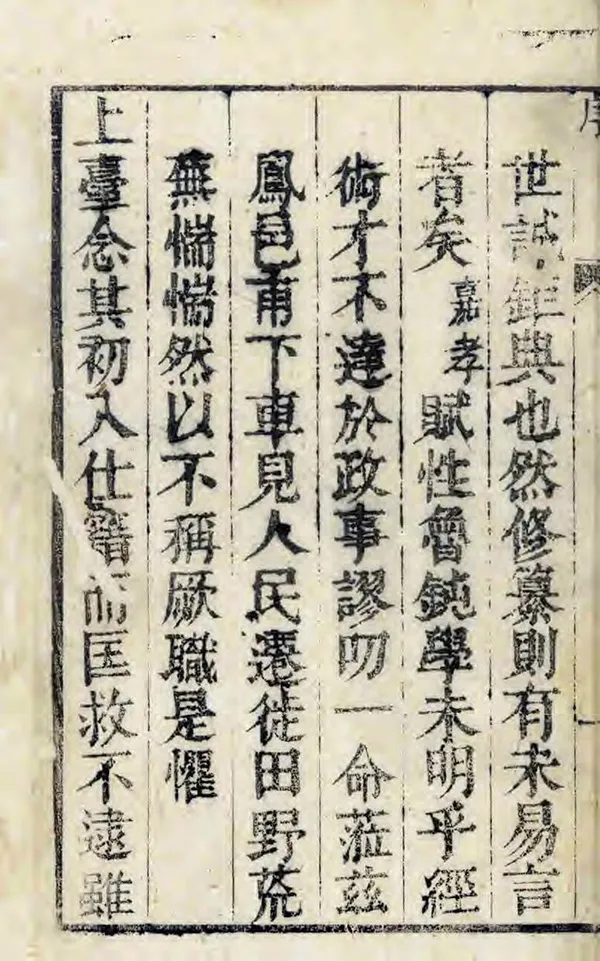 序
世誠鉅典也然修纂則有未易言
者矣嘉孝賦性魯鈍學未明乎經
術才不達於政事謬叨一命蒞茲
鳳邑甫下車見人民遷徙田野荒
蕪惴惴然以不稱厥職是懼
上臺念其初入仕籍而匡救不逮雖